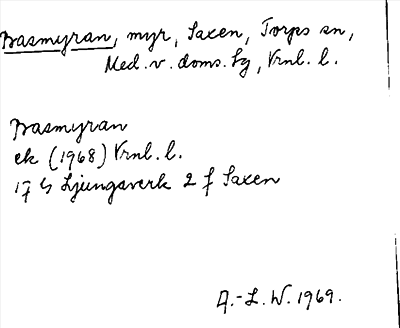 Basmyran, myr, Saxen, Torps sn,
Med. v. doms. sg, Vrnl. l.
Basmyran
ek (1968) Vrnl. l.
17 G Ljungaverk 2 f Saxen
A.-L. W. 1969.